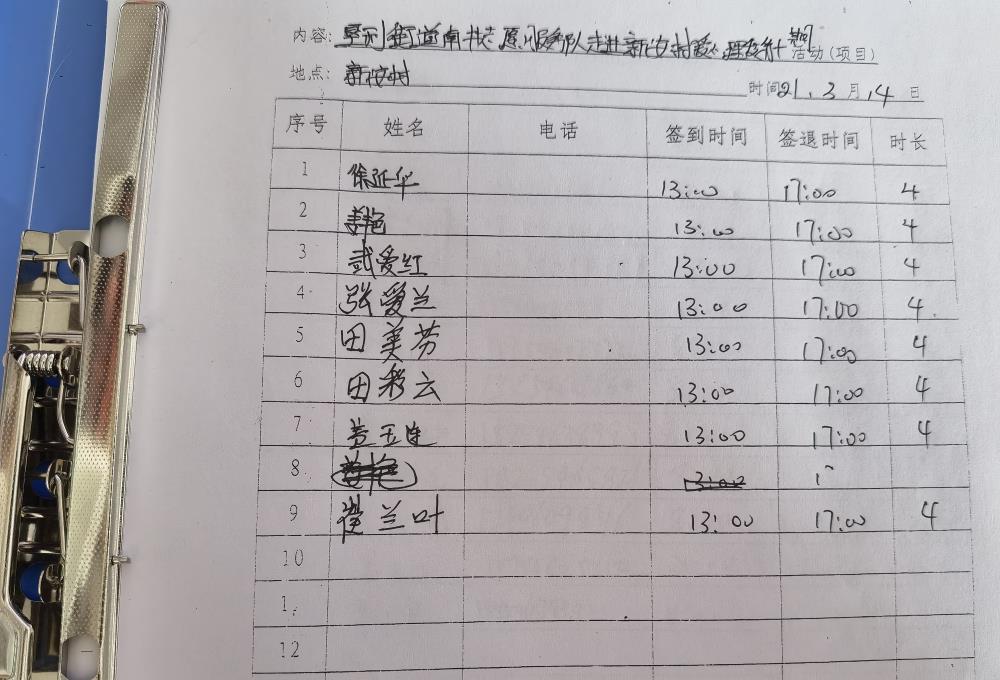 内容: 街道南村志愿服务队走进新汲村爱心理发 活动(项目)
地点: 新汲村
时间21.3月14日
序号 姓名 电话 签到时间 签退时间 时长
1 徐延华 13:00 17:00 4
2 13:00 17:00 4
3 武爱红 13:00 17:00 4
4 张爱兰 13:00 17:00 4
5 田美芬 13:00 17:00 4
6 田彩云 13:00 17:00 4
7 姜玉连 13:00 17:00 4
8 13:00
9 崔兰叶 13:00 17:00 4
10
1
12